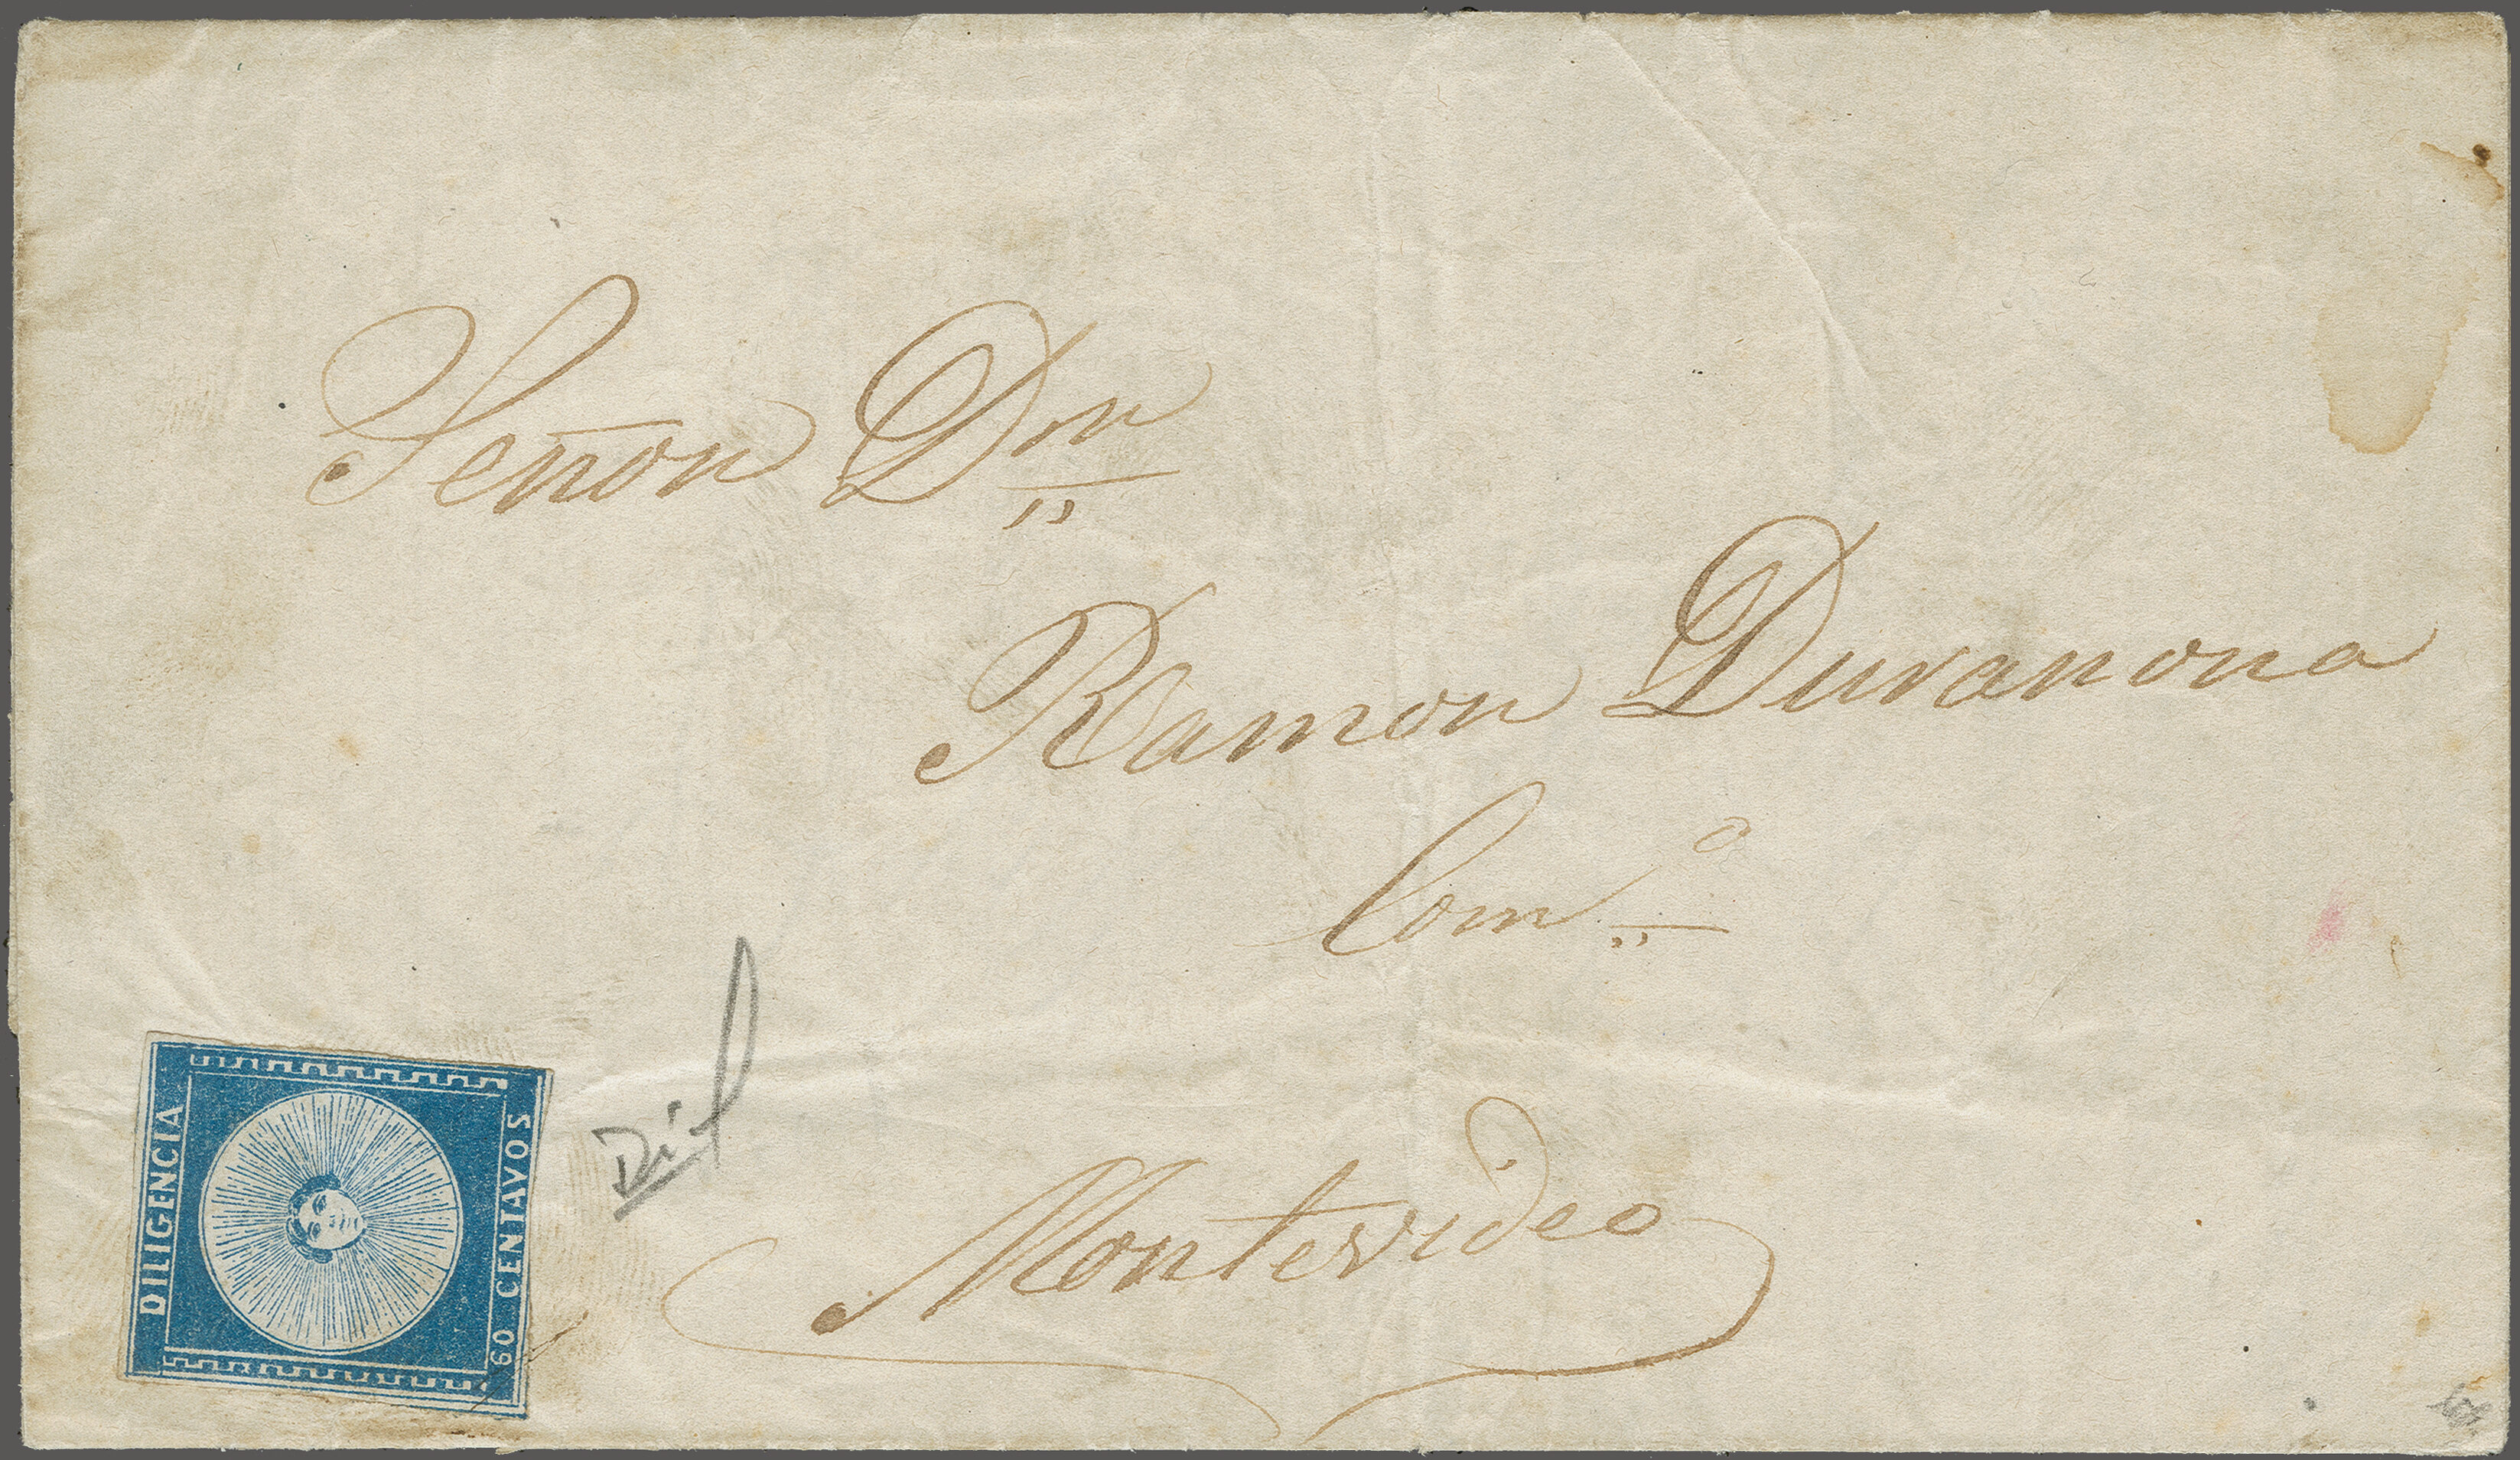 Señor Dn
Ramon Duranona
Comº
Montevideo
DILIGENCIA
60 CENTAVOS